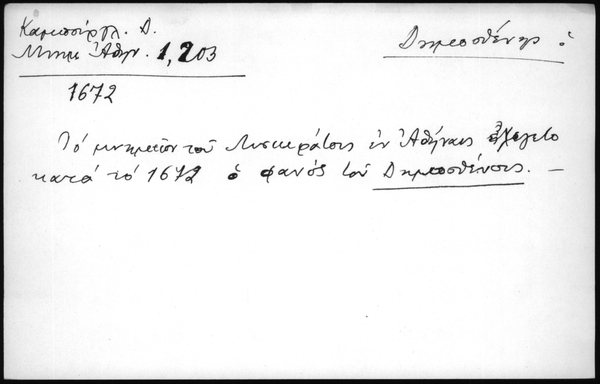 Καμπούρογλ. Δ.
Μνημ Ἀθην. 1, 203
Δημοσθένης ὁ
1672
Τό μνημεῖον τοῦ Λυσικράτους ἐν Ἀθήναις ἐλέγετο
κατά τό 1672 ὁ φανός τοῦ Δημοσθένους. —